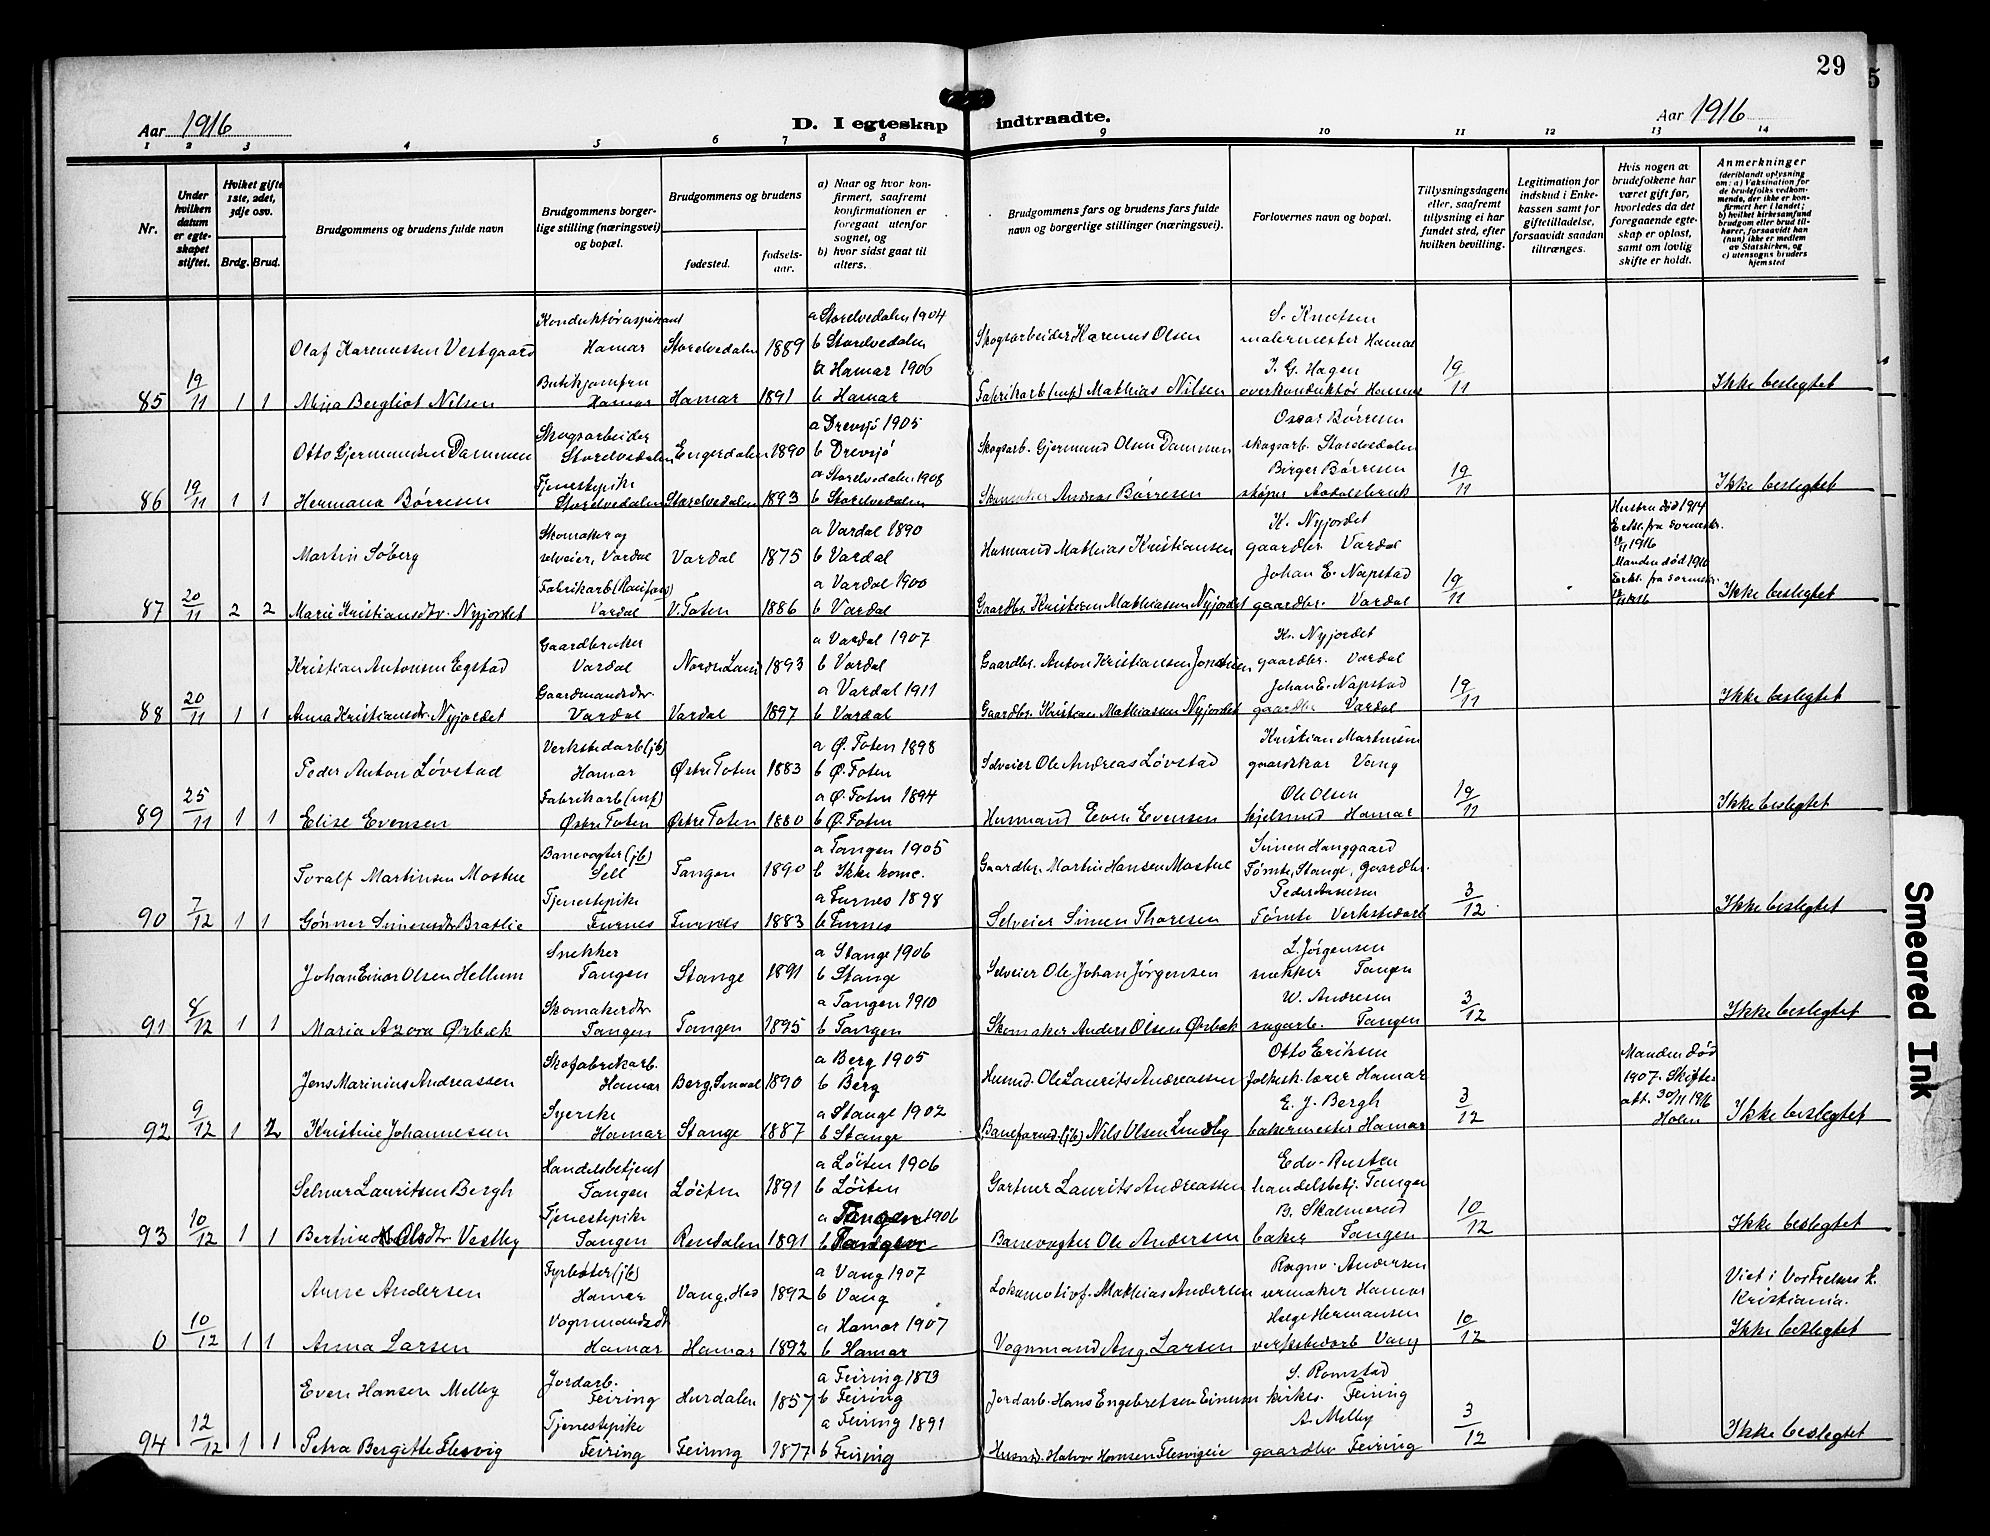 29
5
Aar 1916
D. I egteskap indtraadte.
Aar 1916
1 2 3 4 5 6 7 8 9 10 11 12 13 14
Nr.
Under hvilken datum er egteskapet stiftet.
Hvilket gifte 1ste, 2det, 3dje osv.
Brdg. Brud.
Brudgommens og brudens fulde navn
Brudgommens borgerlige stilling (næringsvei) og bopæl.
Brudgommens og brudens
fødested.
fødselsaar.
a) Naar og hvor konfirmert, saafremt konfirmationen er foregaat utenfor sognet, og
b) hvor sidst gaat til alters.
Brudgommens fars og brudens fars fulde navn og borgerlige stillinger (næringsvei).
Forlovernes navn og bopæl.
Tillysningsdagene eller, saafremt tillysning ei har fundet sted, efter hvilken bevilling.
Legitimation for indskud i Enkekassen samt for giftetilladelse, forsaavidt saadan tiltrænges.
Hvis nogen av brudefolkene har været gift før, hvorledes da det foregaaende egteskap er opløst, samt om lovlig skifte er holdt.
Anmerkninger (deriblandt oplysning om: a) Vaksination for de brudefolks vedkommende, der ikke er konfirmert her i landet; b) hvilket kirkesamfund brudgom eller brud tilhører, forsaavidt han (hun) ikke er medlem av Statskirken, og c) utensogns bruders hjemsted
Konduktøraspirant a Storelvedalen 1904 S. Knutsen
Olaf Karenussen Vestgaard Hamar Storelvedalen 1889 b Storelvedalen Skogsarbeider Karenus Olsen malermester Hamar
Butikjomfru a Hamar 1906 J. G. Hagen
85 19/11 1 1 Mina Bergliot Nilsen Hamar Hamar 1891 b Hamar Fabrikarb. (mf) Mathias Nilsen overkonduktør Hamar 19/11 Ikke beslegtet
Skogsarbeider a Drevsjø 1905 Oscar Børresen
Otto Gjermundsen Dammen Storelvedalen Engerdalen 1890 b Drevsjø Skogsarb. Gjermund Olsen Dammen skogsarb. Storelvedalen
Tjenestepike a Storelvedalen 1908 Birger Børresen
86 19/11 1 1 Hermana Børresen Storelvedalen Storelvedalen 1893 b Storelvedalen Skomaker Andreas Børresen støper Aadalsbruk 19/11 Ikke beslegtet
Skomaker og a Vardal 1890 K. Nyjordet Hustru død 1914
Martin Søberg selveier, Vardal Vardal 1875 b Vardal Husmand Mathias Kristiansen gaardbr. Vardal Erkl. fra sorenskr. 1916
Fabrikarb. (Raufoss) a Vardal 1900 Johan E. Napstad Manden død 1916
87 20/11 2 2 Marie Kristiansdtr. Nyjordet Vardal V. Toten 1886 b Vardal Gaardbr. Kristian Mathiassen Nyjordet gaardbr. Vardal 19/11 Erkl. fra sorenskr. Ikke beslegtet
Gaardbruker a Vardal 1907 K. Nyjordet
Kristian Antonsen Egstad Vardal Nordre Land 1893 b Vardal Gaardbr. Anton Kristiansen gaardbr. Vardal
Gaardmandsdtr. a Vardal 1911 Johan E. Napstad
88 20/11 1 1 Anna Kristiansdtr. Nyjordet Vardal Vardal 1897 b Vardal Gaardbr. Kristian Mathiassen Nyjordet gaardbr Vardal 19/11 Ikke beslegtet
Verkstedarb. (jb) a Ø. Toten 1898 Kristian Martinsen
Peder Anton Løvstad Hamar Østre Toten 1883 b Ø. Toten Selveier Ole Andreas Løvstad gaardskar Vang
Fabrikarb. (mf) a Ø. Toten 1894 Ole Olsen
89 25/11 1 1 Elise Evensen Østre Toten Østre Toten 1880 b Ø. Toten Husmand Even Evensen hjelsmed Hamar 19/11 Ikke beslegtet
Banevogter (jb) a Tangen 1905 Simen Hanggaard
Toralf Martinsen Mostue Sell Tangen 1890 b Ikke kome. Gaardbr. Martin Hansen Mostue Tømte, Stange, Gaardbr.
Tjenestepike a Furnes 1898 Peder Aasesen
90 7/12 1 1 Gønner Simensdtr Bratlie Furnes Furnes 1883 b Furnes Selveier Simen Thoresen Tømte Verkstedarb 3/12 Ikke beslegtet
Snekker a Stange 1906 L. Jørgensen
Johan Einar Olsen Hellum Tangen Stange 1891 b Stange Selveier Ole Johan Jørgensen snekker Tangen
Skomakerdtr a Tangen 1910 W. Andresen
91 8/12 1 1 Maria Azora Ørbæk Tangen Tangen 1895 b Tangen Skomaker Anders Olsen Ørbæk sagarb. Tangen 3/12 Ikke beslegtet
Skofabrikarb. a Berg 1905 Otto Eriksen Manden død
Jens Marinius Andreassen Hamar Berg, Smaal 1890 b Berg Husmd. Ole Laurits Andreassen folkesk. lærer Hamar 1907. Skifte-
Syerske a Stange 1902 E. J. Bergh att. 30/11 1916
92 9/12 1 2 Kristine Johannessen Hamar Stange 1887 b Stange Baneformd. (jb) Nils Olsen Lundby bakermester Hamar 3/12 Ikke beslegtet
Handelsbetjent a Løiten 1906 Edv. Rusten
Selmer Lauritsen Bergh Tangen Løiten 1891 b Løiten Gartner Laurits Andreassen handelsbetj. Tangen
Tjenestepike a Tangen 1906 B. Skalmerud
93 10/12 1 1 Bertine Olsdtr Vestby Tangen Rendalen 1891 b Tangen Banevogter Ole Andersen baker Tangen 10/12 Ikke beslegtet
Fyrbøter (jb) a Vang 1907 Ragnv. Andersen Viet i Vor Frelsers K.
Arne Andersen Hamar Vang, Hed 1892 b Vang Lokomotivf. Mathias Andersen urmaker Hamar Kristiania.
Vognmandsdtr a Hamar 1907 Helge Hermansen
0 10/12 1 1 Anna Larsen Hamar Hamar 1892 b Hamar Vognmand Aug. Larsen verkstedarb Vang 10/12 Ikke beslegtet
Jordarb. a Feiring 1873 S. Romstad
Even Hansen Melby Feiring Hurdalen 1857 b Feiring Jordarb. Hans Engebretsen kirkes. Feiring
Tjenestepike a Feiring 1891 A. Melby
94 12/12 1 1 Petra Bergitte Flesvig Feiring Feiring 1877 b Feiring Husmd. Halvor Hansen Flesvigeie gaardbr Feiring 3/12 Ikke beslegtet
Smeared Ink